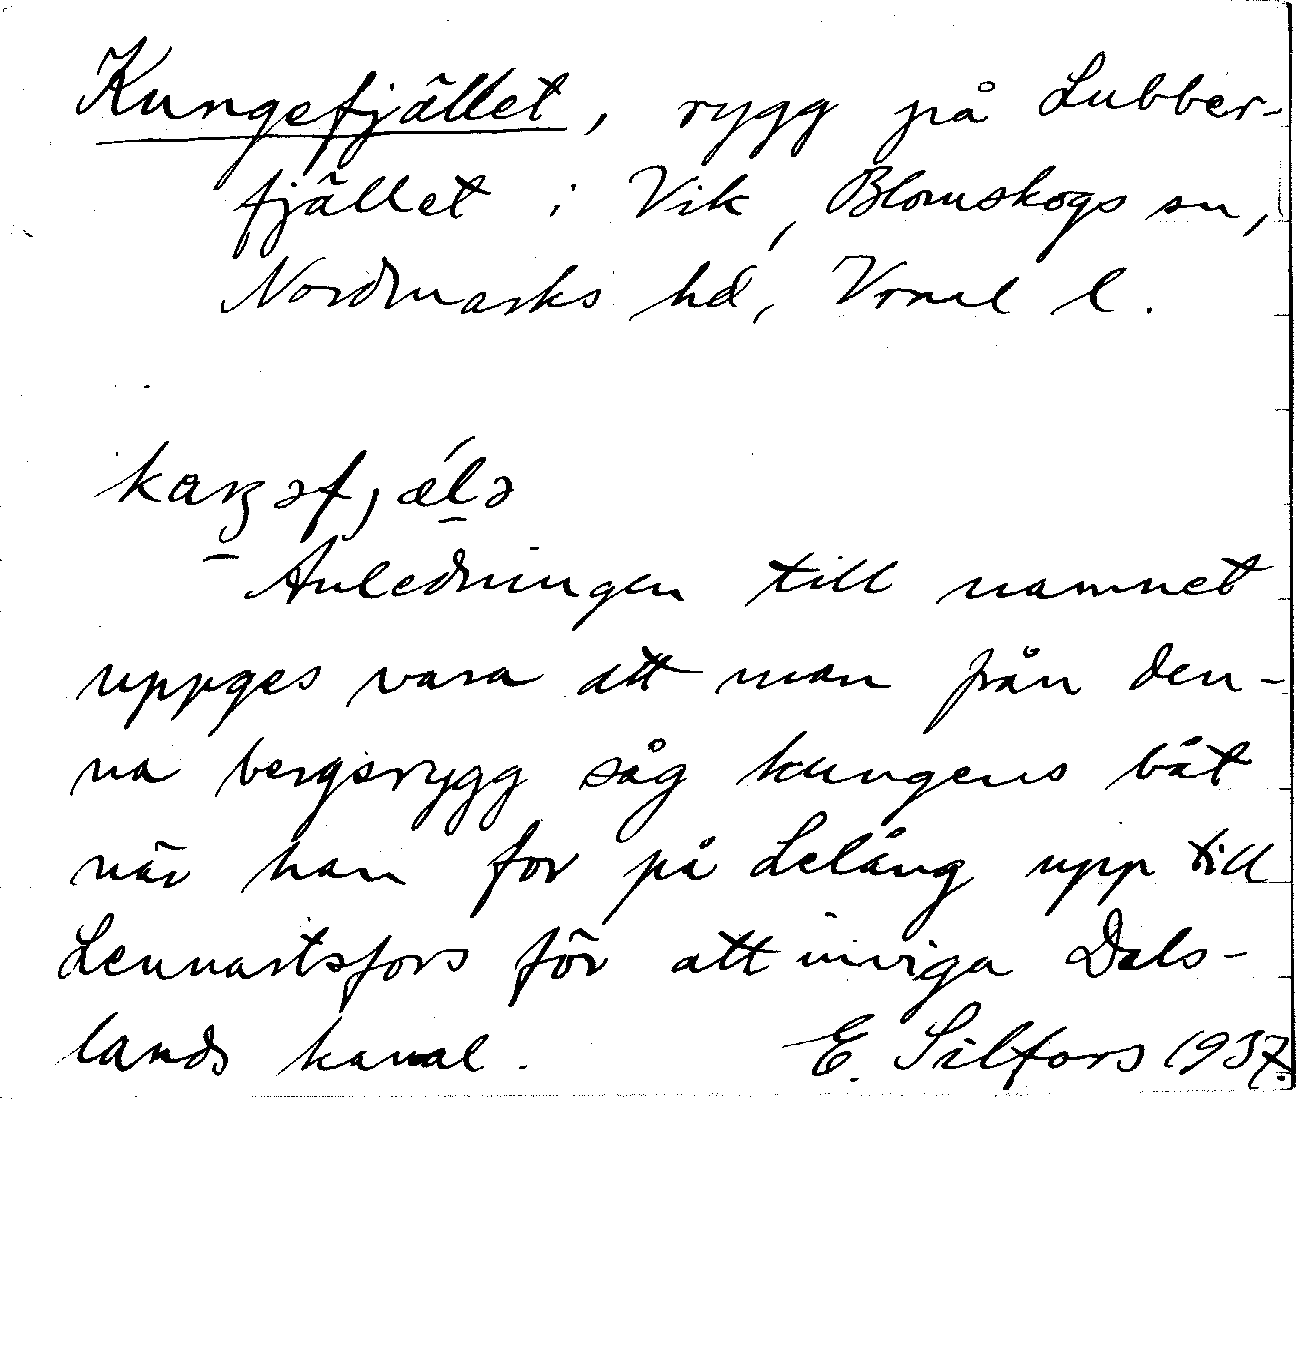 Kungefjället, rygg på Lubber-
fjället i Vik, Blomskogs sn,
Nordmarks hd, Vrml l.
Anledningen till namnet
uppges vara att man från den-
na bergsrygg såg kungens båt
när han for på Lelång upp till
Lennartsfors för att inviga Dals-
lands kanal. E. Silfors 1937.